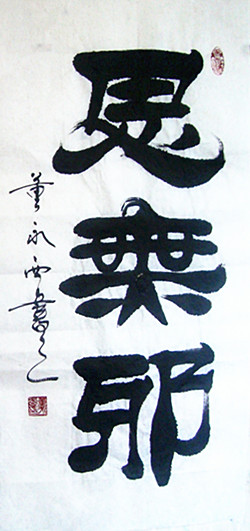 思無邪
董永西書之